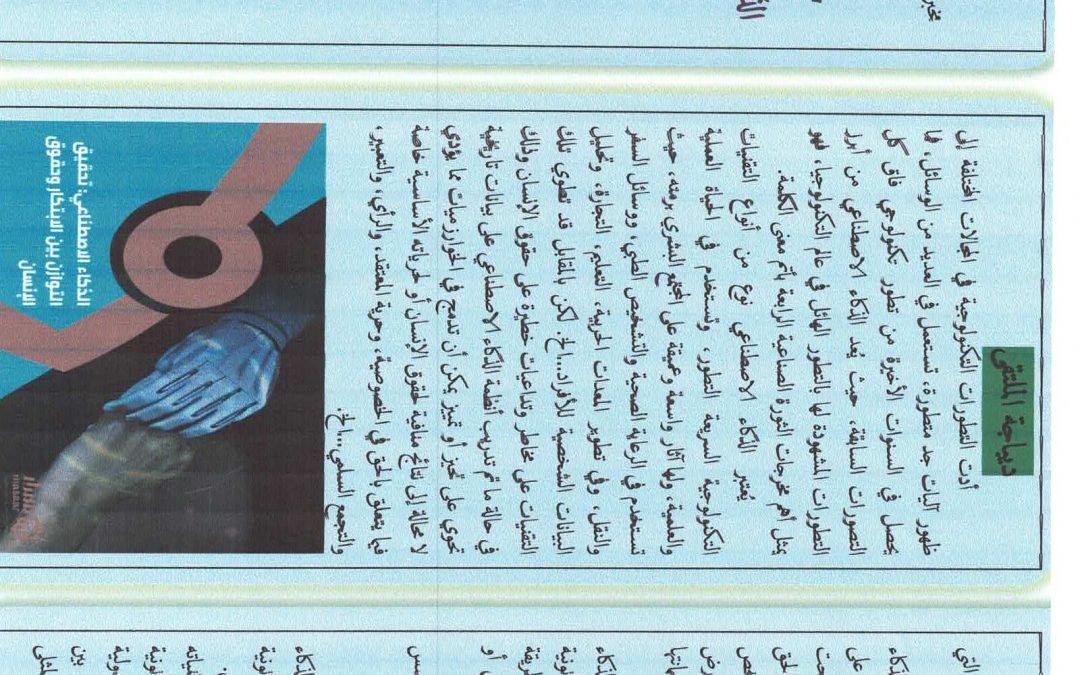 ديباجة الملتقى
أدت التطورات التكنولوجية في المجالات المختلفة إلى
ظهور آليات جد متطورة، تستعمل في العديد من الوسائل، فما
يحصل في السنوات الأخيرة من تطور تكنولوجي فاق كل
التصورات السابقة، حيث يُعد الذكاء الاصطناعي من أبرز
التطورات المشهودة لها بالتطور الهائل في عالم التكنولوجيا، فهو
يمثل أهم مخرجات الثورة الصناعة الرابعة بأتم معنى الكلمة.
يُعتبر الذكاء الاصطناعي نوع من أنواع التقنيات
التكنولوجية السريعة التطور، وتستخدم في الحياة العملية
والعلمية، ولها آثار واسعة وعميقة على المجتمع البشري برمته، حيث
تستخدم في الرعاية الصحية والتشخيص الطبي، ووسائل السفر
والنقل، وفي تطوير المعدات الحربية، التعليم، التجارة، وتحليل
البيانات الشخصية للأفراد...الخ. لكن بالمقابل قد تطوي تلك
التقنيات على مخاطر وتداعيات خطيرة على حقوق الإنسان وذلك
في حالة ما تم تدريب أنظمة الذكاء الاصطناعي على بيانات تاريخية
تحوي على تحيز أو تمييز يمكن أن تدمج في الخوارزميات مما يؤدي
لا محالة إلى نتائج منافية لحقوق الإنسان أو لحرياته الأساسية خاصة
فيما يتعلق بالحق في الخصوصية، وحرية المعتقد، والرأي، والتعبير،
والتجمع السلمي...الخ
الذكاء الاصطناعي: تحقيق
التوازن بين الابتكار وحقوق
الإنسان
masaar
التي
الذكاء
على
لحق
بين